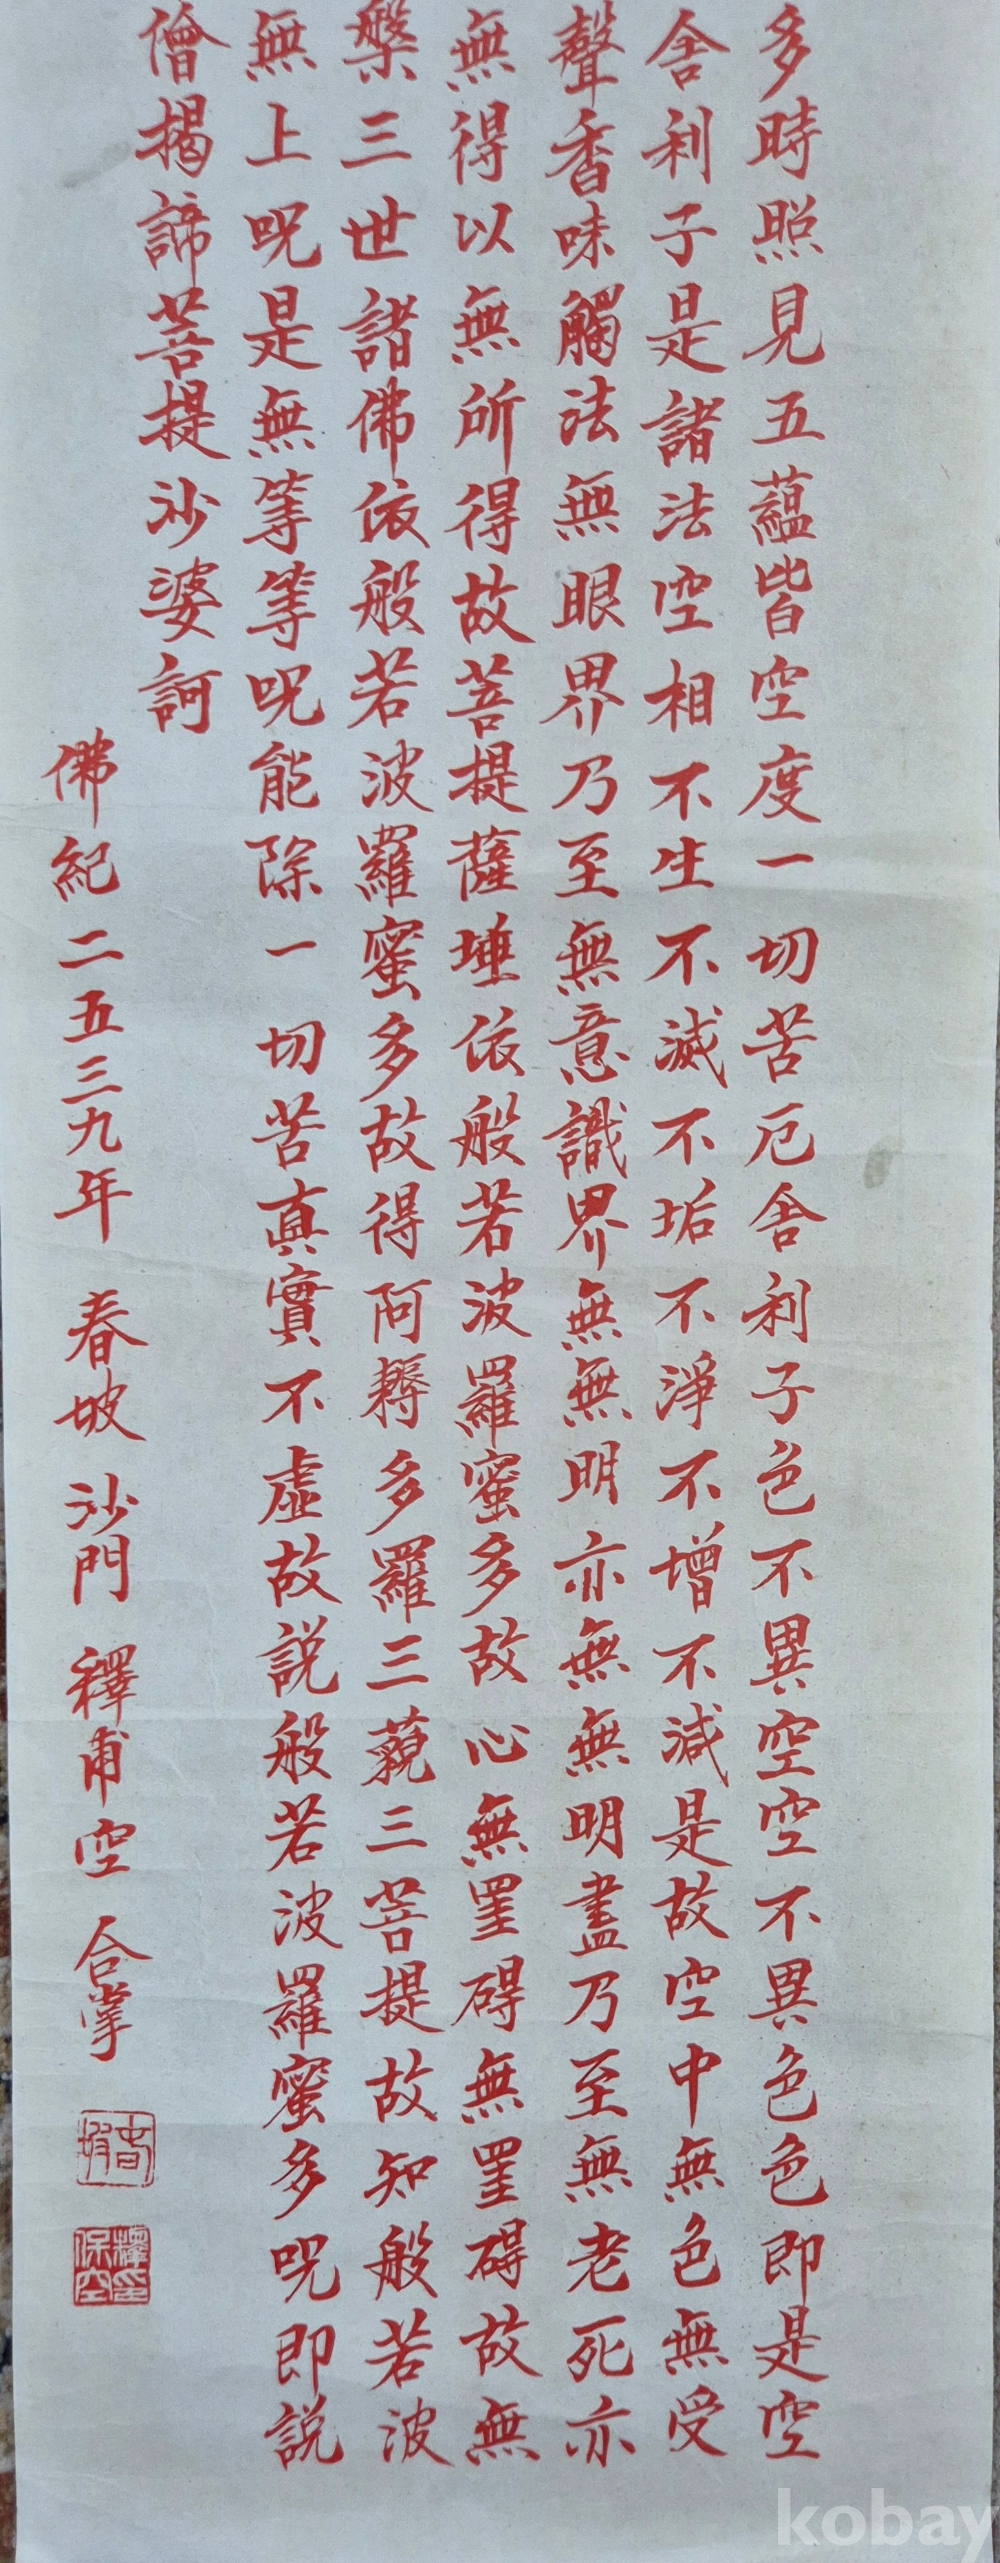 多時照見五蘊皆空度一切苦厄舍利子色不異空空不異色色即是空
舍利子是諸法空相不生不滅不垢不淨不增不減是故空中無色無受
聲香味觸法無眼界乃至無意識界無無明亦無無明盡乃至無老死亦
無得以無所得故菩提薩埵依般若波羅蜜多故心無罣碍無罣碍故無
槃三世諸佛依般若波羅蜜多故得阿耨多羅三藐三菩提故知般若波
無上呪是無等等呪能除一切苦真實不虛故説般若波羅蜜多呪即説
僧揭諦菩提沙婆訶
佛紀二五三九年 春坡 沙門 釋甫空 合掌
春坡
釋甫空印
kobay